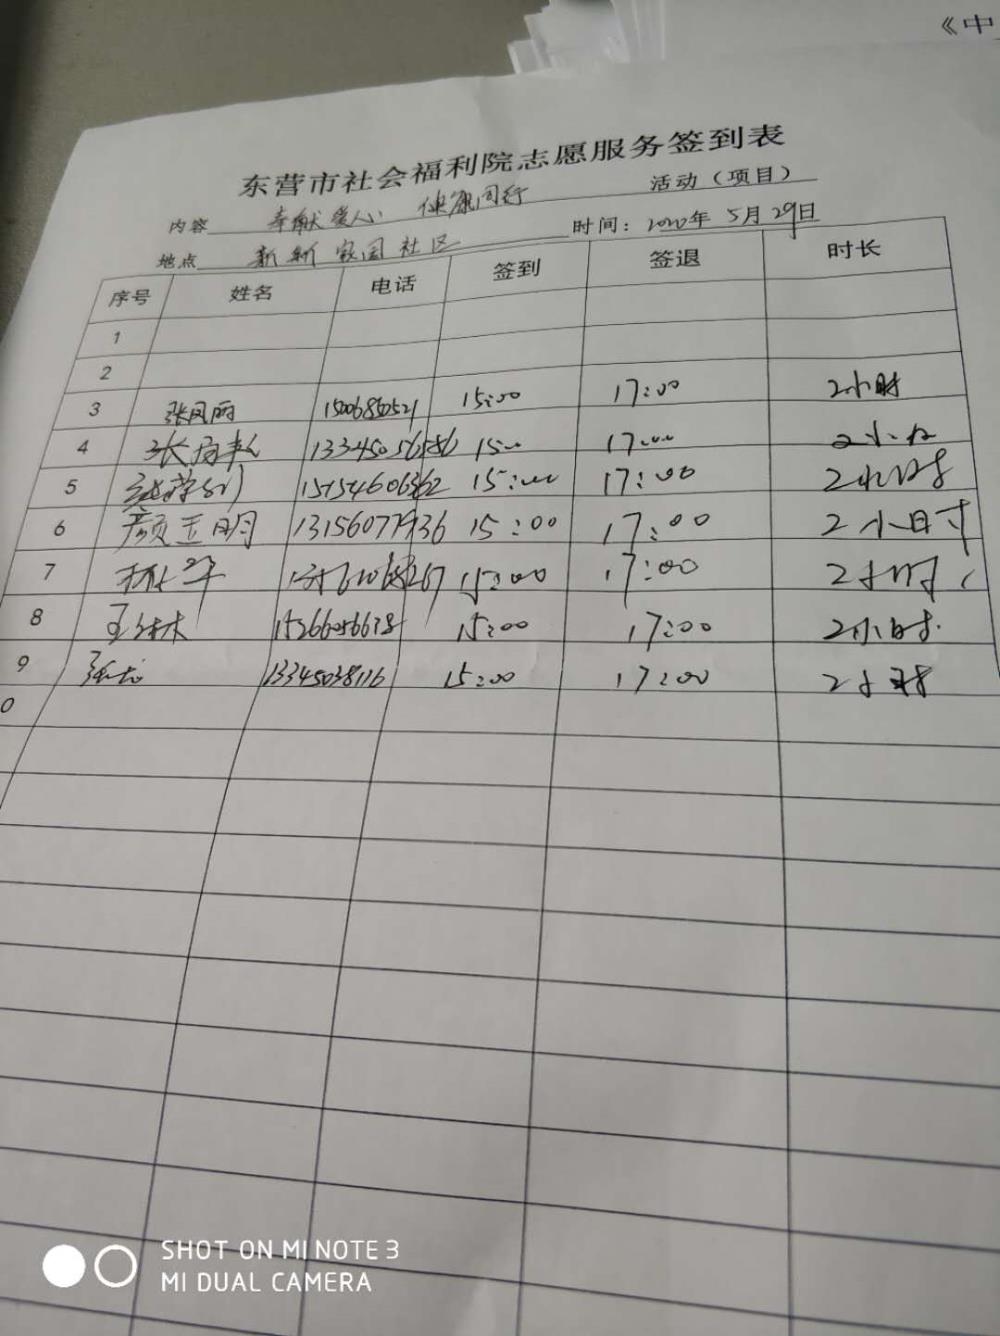 《中
东营市社会福利院志愿服务签到表
内容 奉献爱心 健康同行 活动（项目）
地点 新新家园社区 时间：2020年 5月29日
序号 姓名 电话 签到 签退 时长
1
2
3 张凤丽 15006850521 15:00 17:00 2小时
4 15:00 17:00
5 15:00 17:00 2小时
6 颜玉明 13156077936 15:00 17:00 2小时
7 15:00 17:00 2小时
8 15266056678 15:00 17:00 2小时
9 13345038116 15:00 17:00 2小时
0
SHOT ON MI NOTE 3
MI DUAL CAMERA